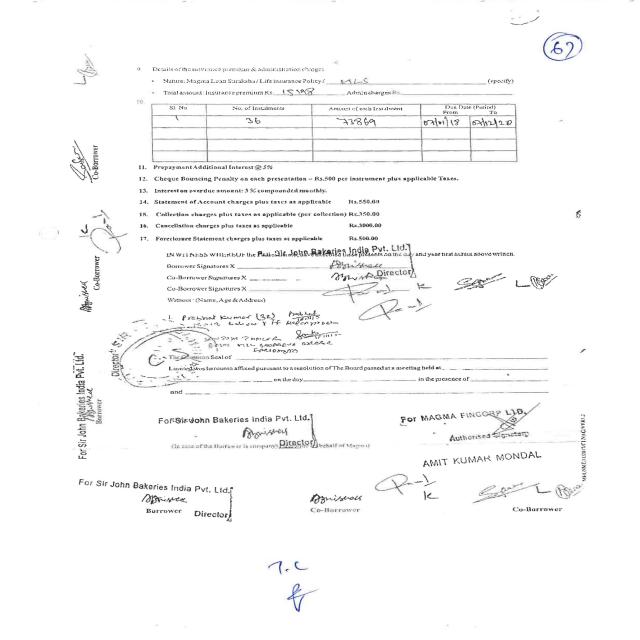 62
9. Details of the insurance premium & administration charges
• Nature: Magma Loan Suraksha / Life insurance Policy / MLS (specify)
• Total amount: Insurance premium Rs. 15198 Admin charges Rs.
10.
Sl. No No. of Instalments Amount of each Instalment Due Date (Period) From To
1 36 73869 07/01/18 07/12/20
11. Prepayment Additional Interest @ 5%
12. Cheque Bouncing Penalty on each presentation – Rs.500 per instrument plus applicable Taxes.
13. Interest on overdue amount: 3% compounded monthly.
14. Statement of Account charges plus taxes as applicable Rs.550.00
15. Collection charges plus taxes as applicable (per collection) Rs.350.00
16. Cancellation charges plus taxes as applicable Rs.3000.00
17. Foreclosure Statement charges plus taxes as applicable Rs.500.00
IN WITNESS WHEREOF the Parties have executed these presents on the day and year first herein above written.
For Sir John Bakeries India Pvt. Ltd.
Borrower Signatures X
Co-Borrower Signatures X Director
Co-Borrower Signatures X
Witness: (Name, Age & Address)
1. Prabhat Kumar (32)
The Common Seal of
Limited was hereunto affixed pursuant to a resolution of The Board passed at a meeting held at
on the day in the presence of
and
For Sir John Bakeries India Pvt. Ltd.
(In case of the Borrower is company) Director (behalf of Magma)
For MAGMA FINCORP LTD.
Authorised Signatory
AMIT KUMAR MONDAL
For Sir John Bakeries India Pvt. Ltd.
Borrower Director
Co-Borrower
Co-Borrower
T.C
Co-Borrower
Co-Borrower
For Sir John Bakeries India Pvt. Ltd.
Borrower
Director